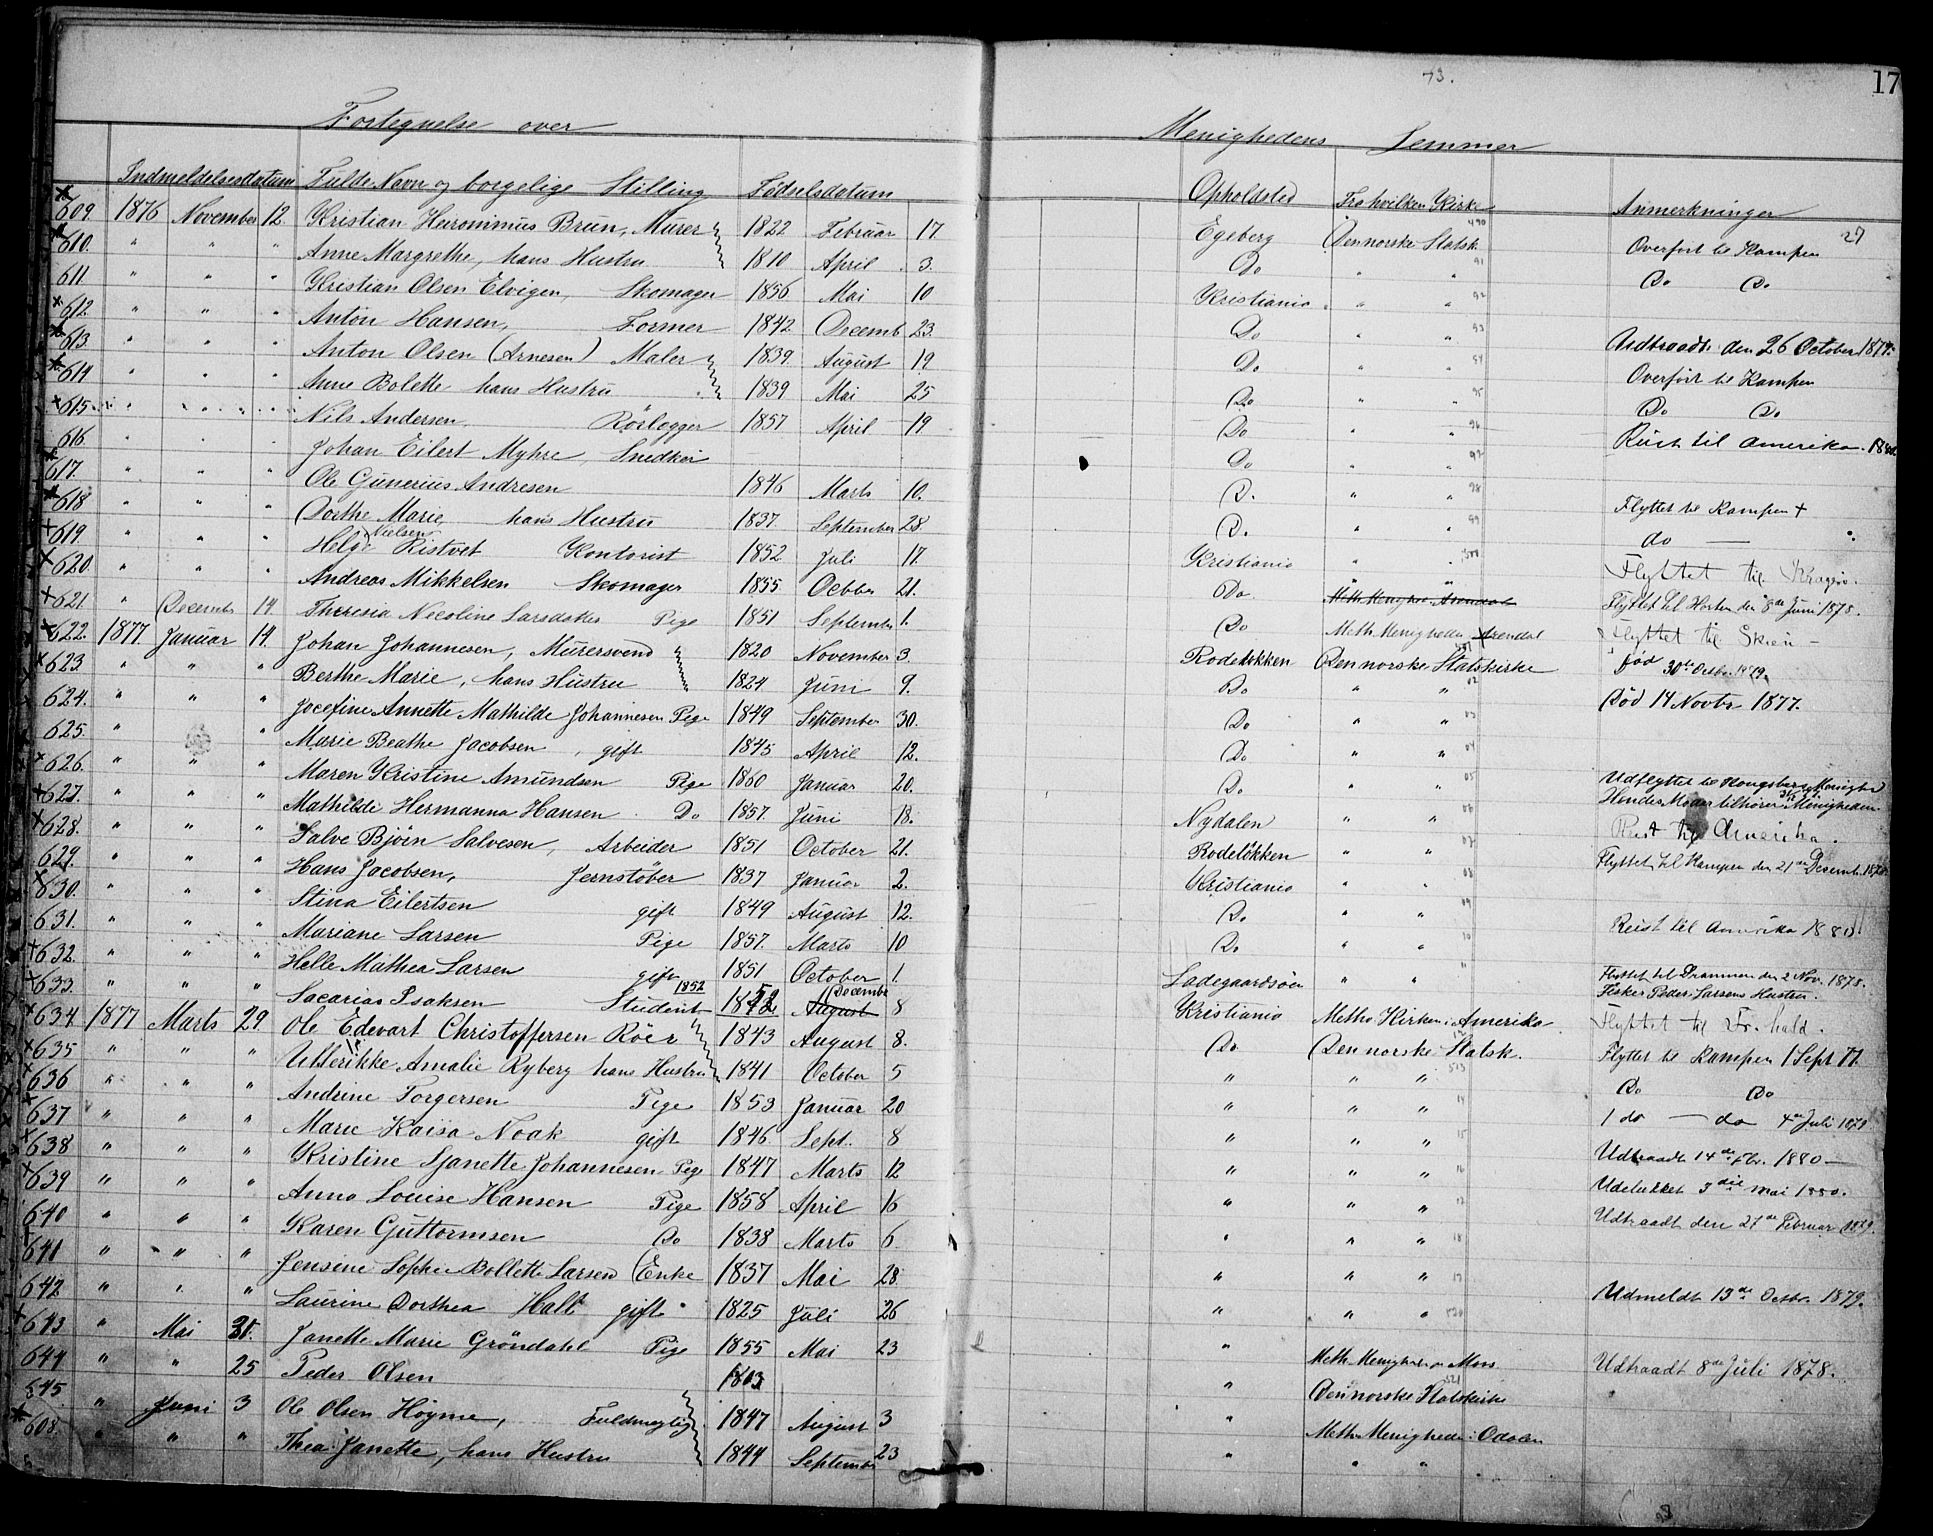 73.
17
Fortegnelse over Menighedens Lemmer
Indmeldelsesdatum Fulde Navn og borgelige Stilling Fødselsdatum Opholdsted Fra hvilken Kirke Anmerkninger
609. 1876 November 12. Kristian Hieronimus Brun, Murer 1822 Februar 17 Egeberg Den norske Statsk. 490 Overført til Kampen 27
610. " " " Anne Margrethe, hans Hustru 1810 April 3. Do " " 91 Do Do
611 " " " Kristian Olsen Elvigen, Skomager 1856 Mai 10 Kristiania " " 92
612 " " " Anton Hansen, Former 1842 Decemb 23. Do " " 93 Udtraadt den 26 October 1879.
613. " " " Anton Olsen (Arnesen) Maler 1839 August 19 Do " " 94 Overført til Kampen
614 " " " Anne Bolette hans Hustru 1839 Mai 25 Do " " 95 Do Do
615 " " " Nils Andersen Rörlegger 1857 April 19 Do " " 96 Reist til Amerika.
616 " " " Johan Eilert Myhre, Snedker Do " " 97
617. " " " Ole Gunerius Andresen 1846 Marts 10. D. " " 98 Flyttet til Kampen +
618 " " " Dorthe Marie, hans Hustru 1837. September 28. D. " " 99 do —
619 " " " Helge Nielsen Ristvet Kontorist 1852 Juli 17. Kristiania " " 500 Flyttet til Kragerö.
620. " " " Andreas Mikkelsen Skomager 1855 Octbr 21. Do Meth. Menighed Arendal Flyttet til Horten den 8de Juni 1878.
621 " December 14. Theresia Nicoline Larsdatter Pige 1851 Septembr 1. Do Meth. Menigheden Arendal Flyttet til Skien —
622. 1877 Januar 14. Johan Johannesen, Murersvend 1820 November 3. Rodeløkken Den norske Statskirke Död 30te Octbr. 1879.
623. " " " Berthe Marie, hans Hustru 1824 Juni 9. Do " " 02 Död 14 Novbr 1877.
624. " " " Josefine Annette Mathilde Johannesen Pige 1849 September 30. Do " " 03
625. " " " Marie Beathe Jacobsen, gift 1845 April 12. Do " " 04
626. " " " Maren Kristine Amundsen Pige 1860 Januar 20. Do " " 05 Udflyttet til Kongsberg Menighed
627. " " " Mathilde Hermanna Hansen Do 1857. Juni 18. Nydalen " " 06 Hendes Moder tilhører Menigheden
628. " " " Salve Bjöin Salvesen, Arbeider 1851 October 21. Rodelökken " " 07 Reist til Amerika.
629. " " " Hans Jacobsen, Jernstöber 1837 Januar 2. Kristiania " " 08 Flyttet til Kampen den 21de Decemb.
630. " " " Stina Eilertsen gift 1849 August 12. Do " " 09
631. " " " Mariane Larsen Pige 1857. Marts 10 Do " " 10 Reist til Amerika 1880
632. " " " Helle Mathea Larsen gift 1851 October 1. Ladegaardsöen " " 11 Flyttet til Drammen den 2 Nov. 1878.
633. " " " Sacarias Isaksen Student 1852 1852 August Decembr 8 Kristiania Metho Kirken i Amerika Fisker Peder Larsens Hustru.
634 1877 Marts 29 Ole Edevart Christoffersen Röer 1843 August 8. Do Den norske Statsk. Flyttet til Fr.hald.
635 " " " Ullerikke Amalie Ryberg hans Hustru 1841 October 5 " " " 513 Flyttet til Kampen 1 Sept 77.
636 " " " Andrine Torgersen Pige 1853 Januar 20 " " " 14 Do Do
637 " " " Marie Kaisa Noak gift 1846 Sept. 8 " " " 15 1 do — do 4de Juli 1879
638 " " " Kristine Ljanette Johannesen Pige 1847 Marts 12 " " " 16 Udtraadt 14de Fbr. 1880 —
639 " " " Anna Louise Hansen Pige 1858 April 16 " " " 17 Udelukket 3die Mai 1880.
640 " " " Karen Guttormsen Do 1838 Marts 6. " " " 18 Udtraadt den 27de Februar 1879.
641 " " " Jensine Sophie Bollette Larsen Enke 1837 Mai 28 " " " 19
642 " " " Laurine Dorthea Hall gift 1825 Juli 26 " " " 520 Udmeldt 13de Octbr. 1879.
643 " Mai 31. Janette Marie Gröndahl Pige 1855 Mai 23 " Meth. Menighed Moss
644 " " 25 Peder Olsen 1803 " Den norske Statskirke 521 Udtraadt 8de Juli 1878.
645. " Juni 3 Ole Olsen Höyme, Fuldmegtig 1847 August 3 " Meth. Menighed i Odalen
608. " " " Thea Janette, hans Hustru 1844 Septembr 23 " " "